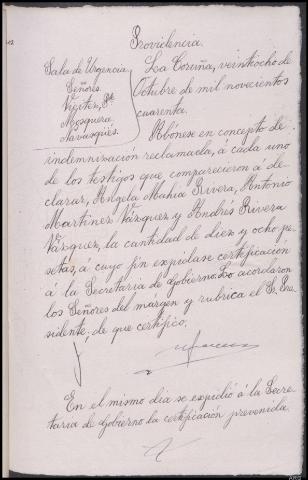 Providencia.
Sala de Urgencia
Señores.
Mosquera
Navasqües.
La Coruña, veintiocho de
Octubre de mil novecientos
cuarenta.
Abónese en concepto de
indemnización reclamada, á cada uno
de los testigos que comparecieron á de-
clarar, Angela Mahía Rivera, Antonio
Martínez Vázquez y Andrés Rivera
Vázquez, la cantidad de diez y ocho pe-
setas, á cuyo fin expídase certificación
á la Secretaría de Gobierno. Lo acordaron
los Señores del margen y rubrica el S. Pre-
sidente; de que certifico.
En el mismo día se expidió á la Secre-
taría de Gobierno la certificación prevenida.